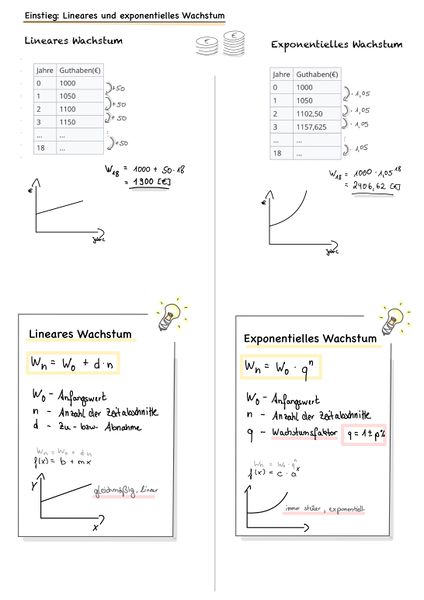 Einstieg: Lineares und exponentielles Wachstum
Lineares Wachstum
€
€
Jahre Guthaben(€)
0 1000
1 1050
2 1100
3 1150
... ...
18 ...
+50
+50
+50
:
+50
W₁₈ = 1000 + 50·18
= 1900 [€]
€
Jahre
Exponentielles Wachstum
Jahre Guthaben(€)
0 1000
1 1050
2 1102,50
3 1157,625
... ...
18 ...
· 1,05
· 1,05
· 1,05
:
· 1,05
W₁₈ = 1000 · 1,05¹⁸
= 2406,62 [€]
€
Jahre
Lineares Wachstum
Wₙ = W₀ + d·n
W₀ - Anfangswert
n - Anzahl der Zeitabschnitte
d - Zu- bzw. Abnahme
Wₙ = W₀ + d·n
f(x) = b + mx
Y
gleichmäßig, linear
X
Exponentielles Wachstum
Wₙ = W₀ · qⁿ
W₀ - Anfangswert
n - Anzahl der Zeitabschnitte
q - Wachstumsfaktor q = 1 ± p%
Wₙ = W₀ · qⁿ
f(x) = c · aˣ
immer steiler, exponentiell